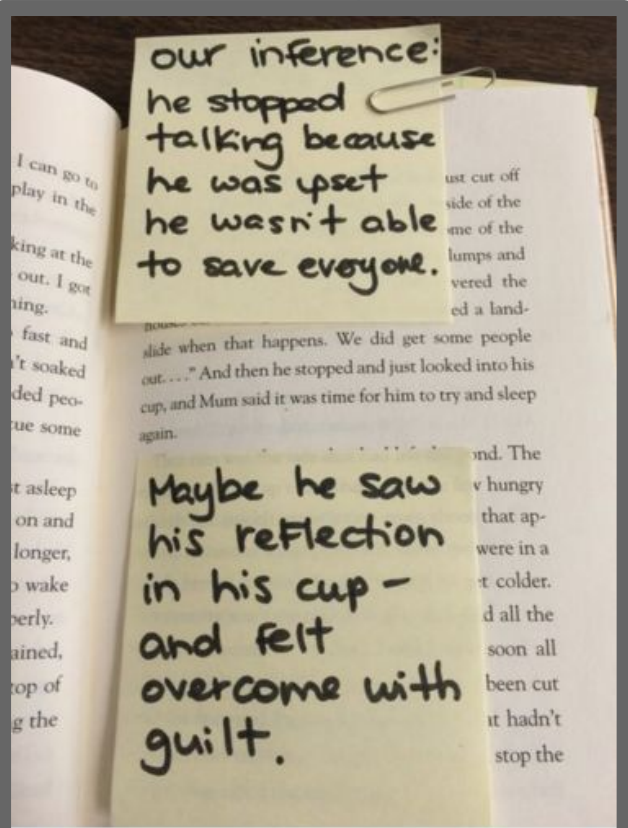 our inference:
he stopped
talking because
he was upset
he wasn't able
to save everyone.
I can go to
play in the
king at the
out. I got
ning.
fast and
't soaked
ded peo-
ue some
t asleep
on and
longer,
wake
perly.
ained,
top of
g the
ust cut off
side of the
me of the
lumps and
vered the
ed a land-
slide when that happens. We did get some people
out. . . ." And then he stopped and just looked into his
cup, and Mum said it was time for him to try and sleep
again.
ond. The
hungry
that ap-
were in a
t colder.
d all the
soon all
been cut
it hadn't
stop the
Maybe he saw
his reflection
in his cup -
and felt
overcome with
guilt.